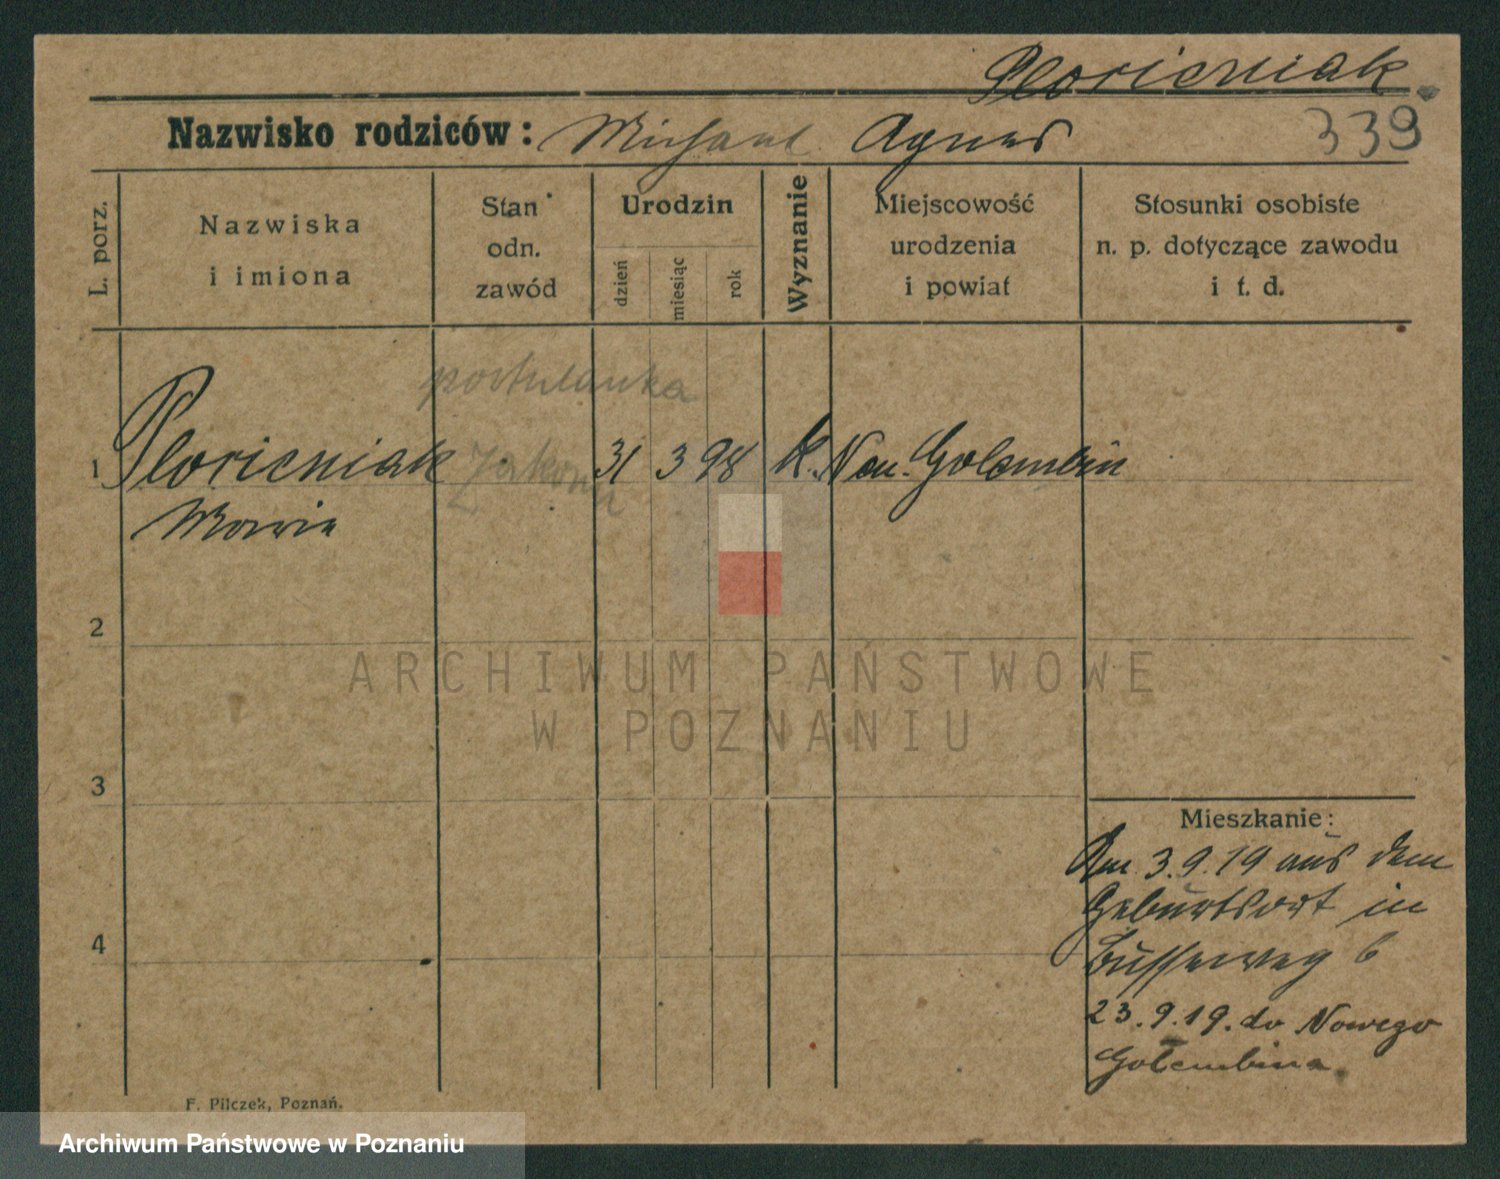 Ploricrniak
339
Nazwisko rodziców: Michael Agnes
L. porz.
Nazwiska
i imiona
Stan
odn.
zawód
Urodzin
dzień
miesiąc
rok
Wyznanie
Miejscowość
urodzenia
i powiat
Stosunki osobiste
n. p. dotyczące zawodu
i t. d.
postulanka
1 Ploricrniak zakonu 31 3 98 k. Neu. Golembin
Marie
2
ARCHIWUM PAŃSTWOWE
W POZNANIU
3
Mieszkanie:
Am 3.9.19 aus dem
Geburtsort in
Busseweg 6
4
23.9.19. do Nowego
Golembina
F. Pilczek, Poznań.
Archiwum Państwowe w Poznaniu